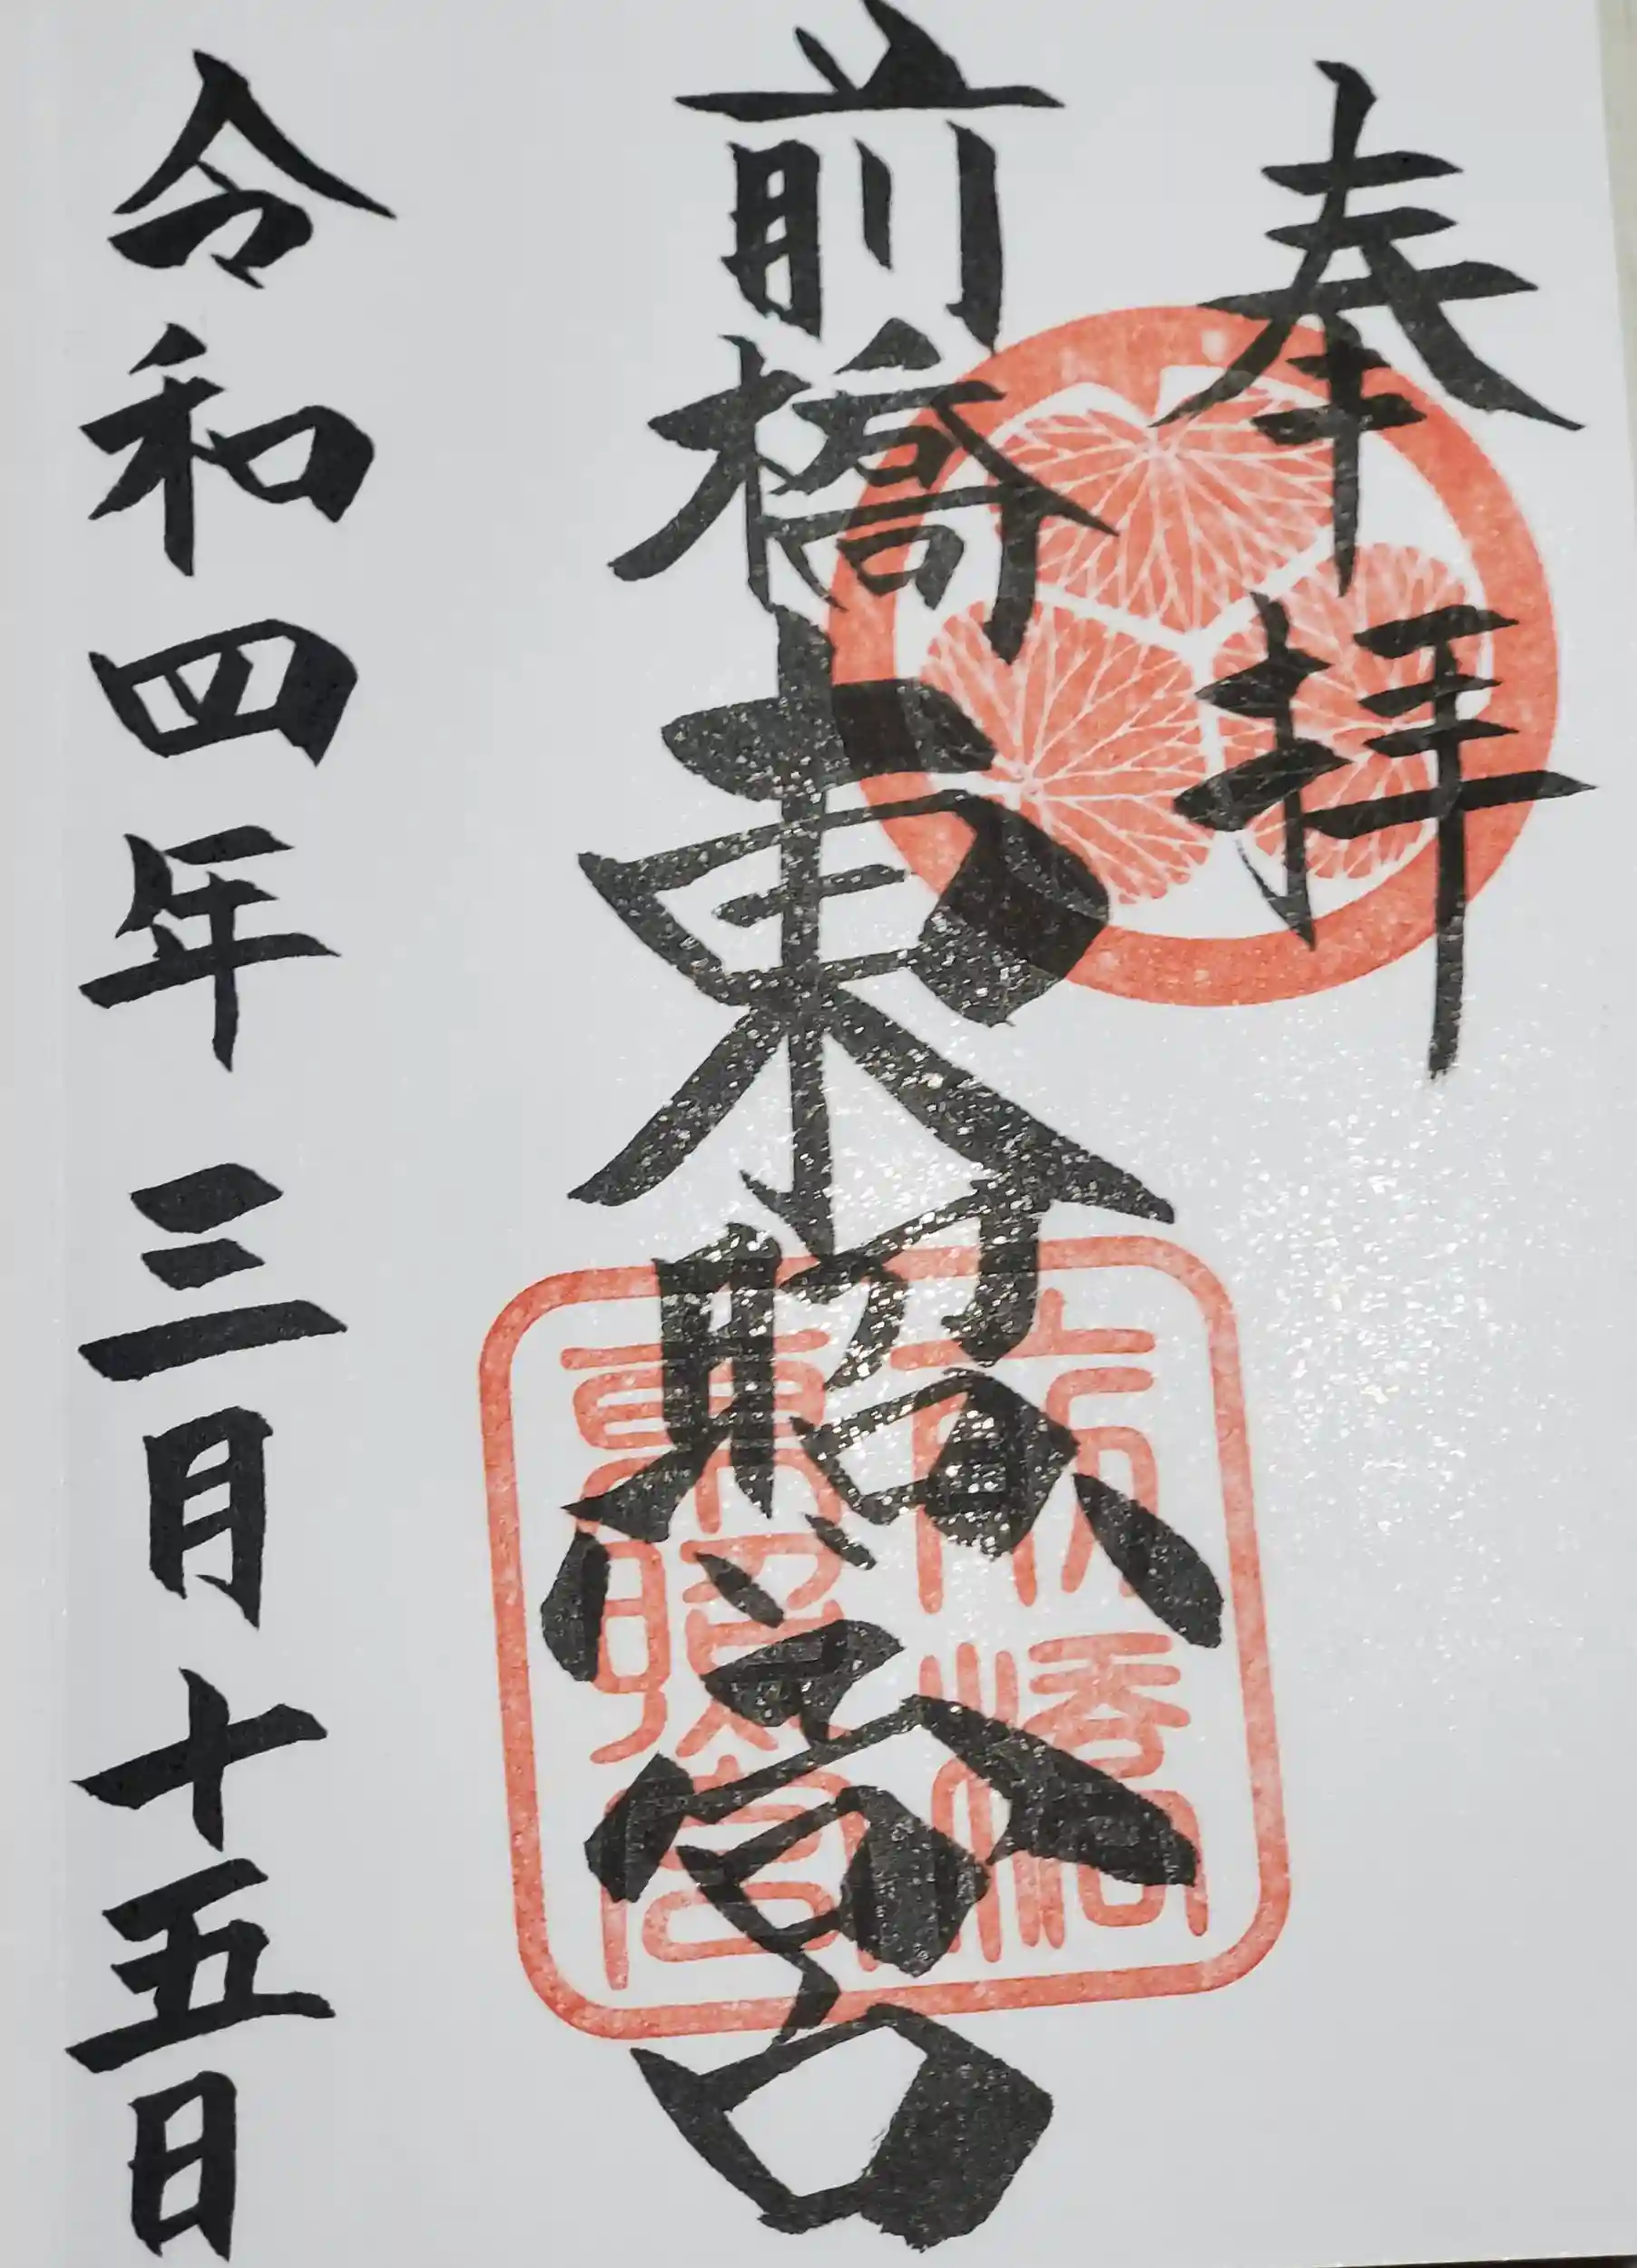 奉拝
前橋東照宮
前橋
東照宮
令和四年三月十五日